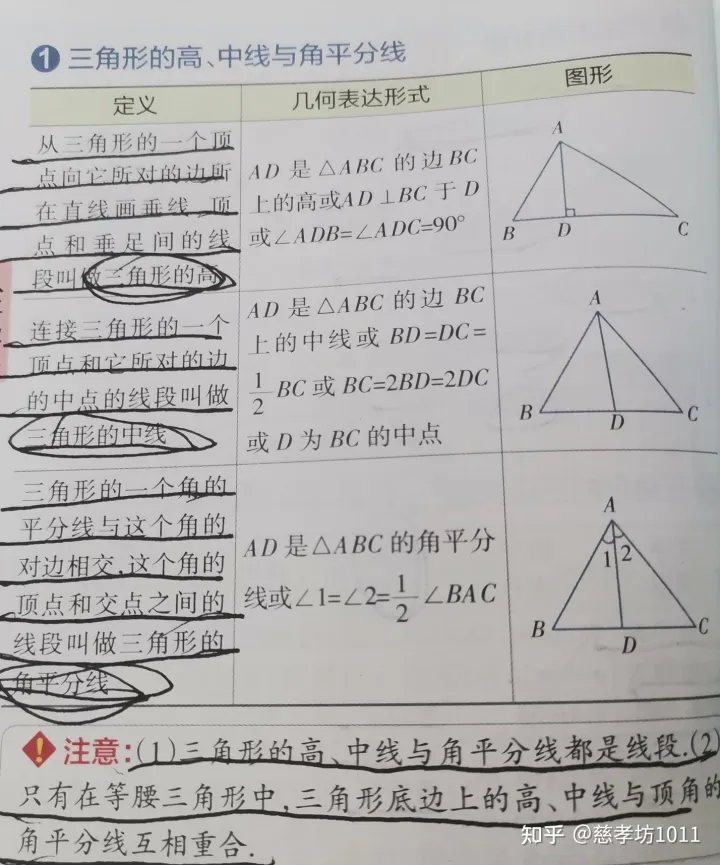 1 三角形的高、中线与角平分线
定义
几何表达形式
图形
从三角形的一个顶
点向它所对的边所
在直线画垂线,顶
点和垂足间的线
段叫做三角形的高
AD 是△ABC 的边 BC
上的高或AD⊥BC 于 D
或∠ADB=∠ADC=90°
A
B
D
C
连接三角形的一个
顶点和它所对的边
的中点的线段叫做
三角形的中线
AD 是△ABC 的边 BC
上的中线或 BD=DC=
1/2 BC 或 BC=2BD=2DC
或 D 为 BC 的中点
A
B
D
C
三角形的一个角的
平分线与这个角的
对边相交,这个角的
顶点和交点之间的
线段叫做三角形的
角平分线
AD 是△ABC 的角平分
线或∠1=∠2=1/2∠BAC
A
1 2
B
D
C
! 注意:(1)三角形的高、中线与角平分线都是线段.(2)
只有在等腰三角形中,三角形底边上的高、中线与顶角的
角平分线互相重合.
知乎 @慈孝坊1011